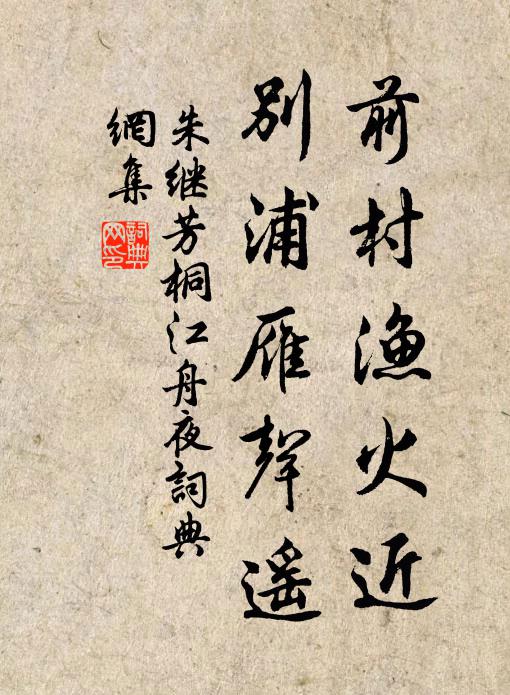 前村渔火近
别浦雁聲遥
朱继芳桐江舟夜詞典
網集
詞典
网印